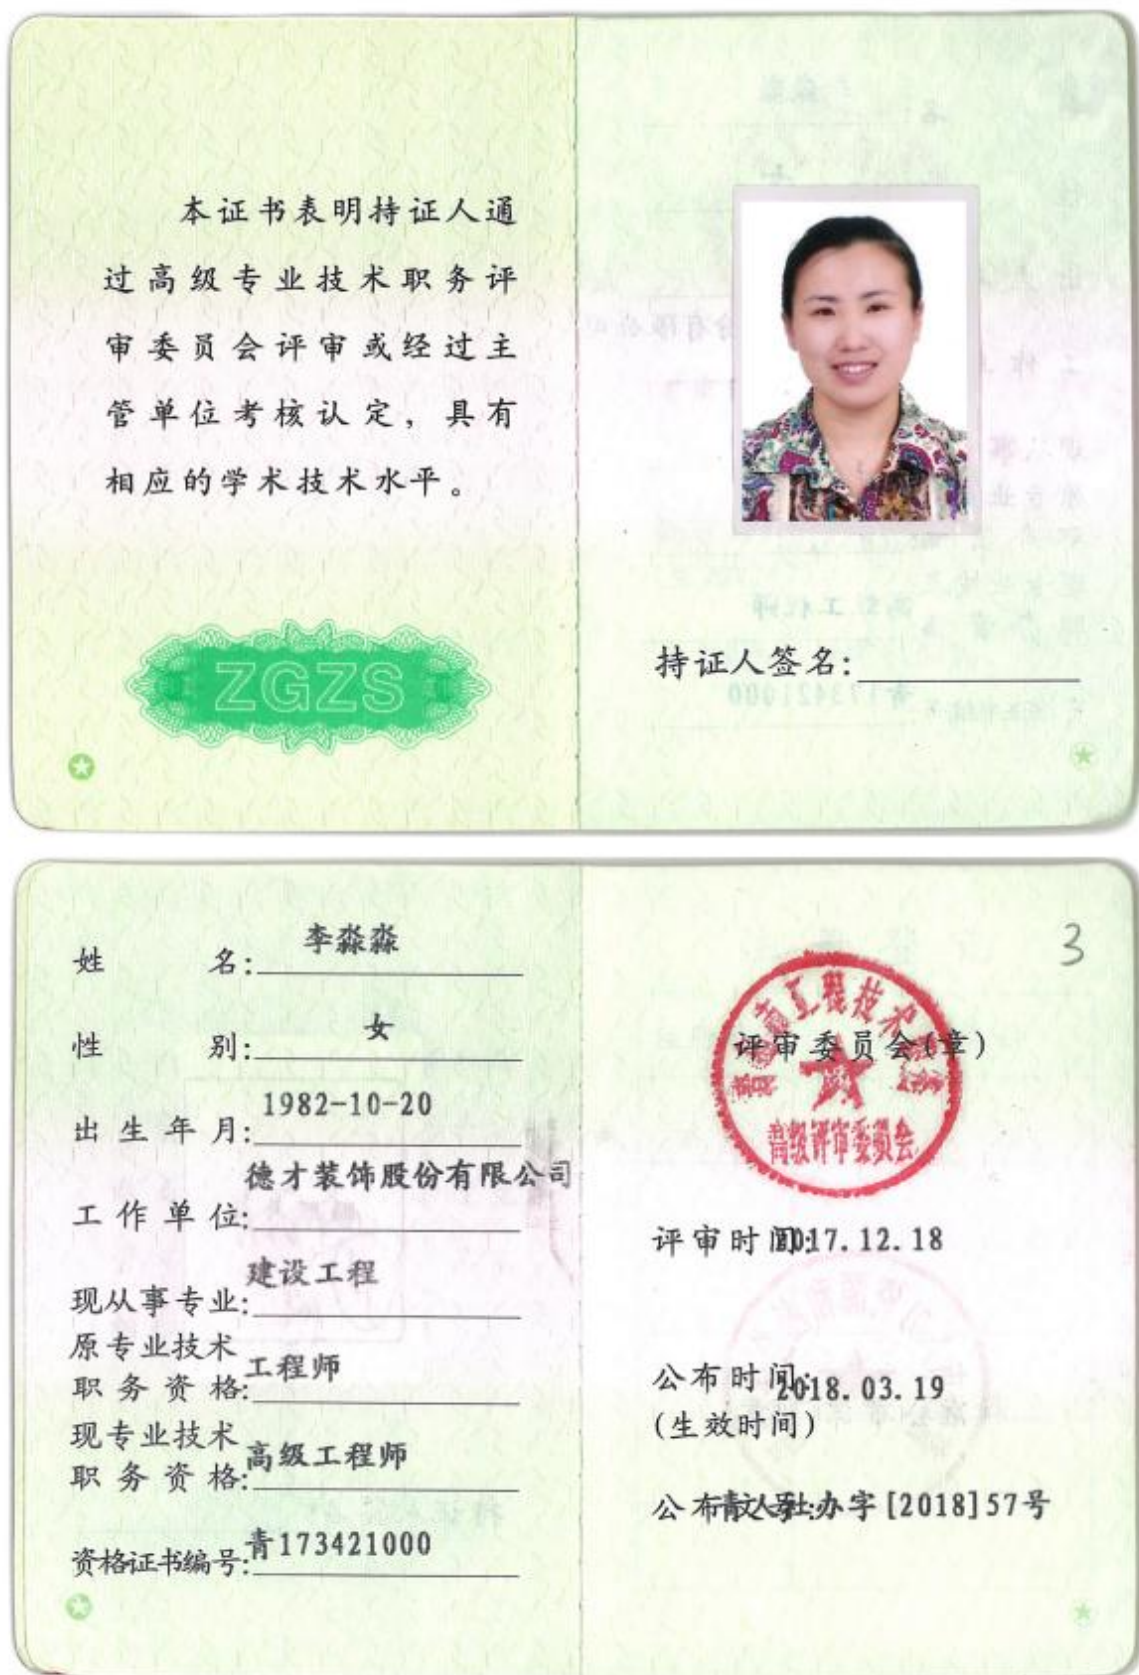 本证书表明持证人通
过高级专业技术职务评
审委员会评审或经过主
管单位考核认定，具有
相应的学术技术水平。
ZGZS
持证人签名:
姓 名: 李淼淼
性 别: 女
出生年月: 1982-10-20
工作单位: 德才装饰股份有限公司
现从事专业: 建设工程
原专业技术
职务资格: 工程师
现专业技术
职务资格: 高级工程师
资格证书编号: 青173421000
3
工程技术
评审委员会(章)
高级评审委员会
评审时间: 2017.12.18
公布时间: 2018.03.19
(生效时间)
公布文号: 青人社办字[2018]57号